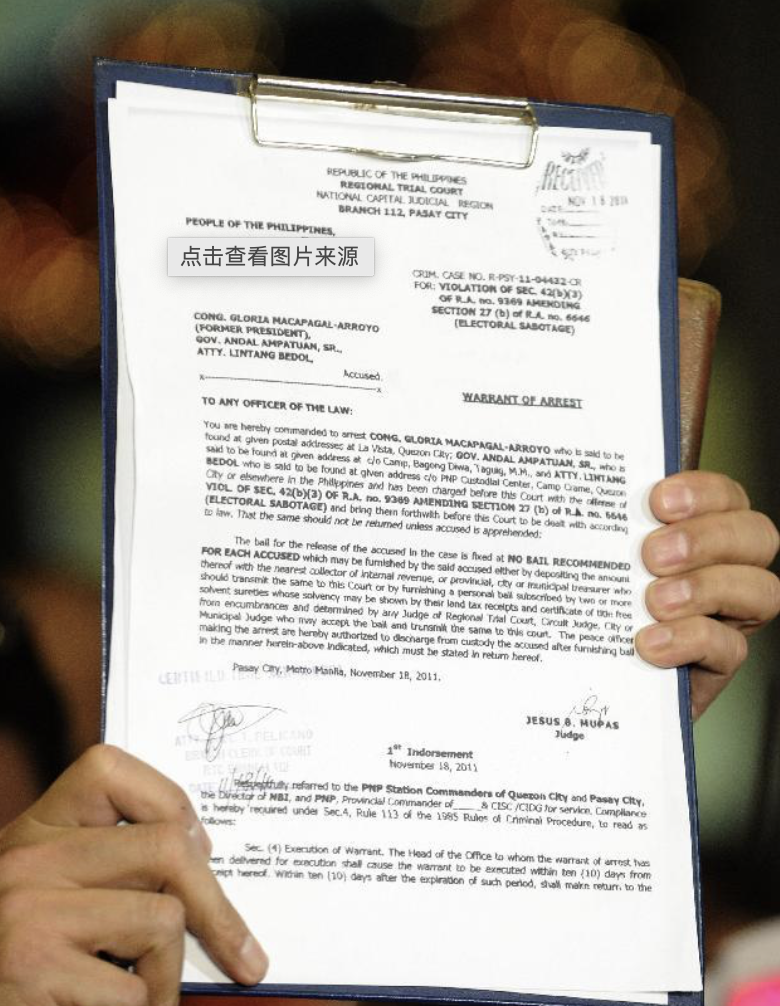 REPUBLIC OF THE PHILIPPINES
REGIONAL TRIAL COURT
NATIONAL CAPITAL JUDICIAL REGION
BRANCH 112, PASAY CITY
RECEIVED
NOV 18 2011
DATE
PEOPLE OF THE PHILIPPINES,
点击查看图片来源
CRIM. CASE NO. R-PSY-11-04432-CR
FOR: VIOLATION OF SEC. 42(b)(3)
OF R.A. no. 9369 AMENDING
SECTION 27 (b) of R.A. no. 6646
(ELECTORAL SABOTAGE)
CONG. GLORIA MACAPAGAL-ARROYO
(FORMER PRESIDENT),
GOV. ANDAL AMPATUAN, SR.,
ATTY. LINTANG BEDOL,
Accused.
x-----------------------------------x
WARRANT OF ARREST
TO ANY OFFICER OF THE LAW:
You are hereby commanded to arrest CONG. GLORIA MACAPAGAL-ARROYO who is said to be
found at given postal addresses at La Vista, Quezon City; GOV. ANDAL AMPATUAN, SR., who is
said to be found at given address at c/o Camp, Bagong Diwa, Taguig, M.M., and ATTY. LINTANG
BEDOL who is said to be found at given address c/o PNP Custodial Center, Camp Crame, Quezon
City or elsewhere in the Philippines and has been charged before this Court with the offense of
VIOL. OF SEC. 42(b)(3) OF R.A. no. 9369 AMENDING SECTION 27 (b) of R.A. no. 6646
(ELECTORAL SABOTAGE) and bring them forthwith before this Court to be dealt with according
to law. That the same should not be returned unless accused is apprehended:
The bail for the release of the accused in the case is fixed at NO BAIL RECOMMENDED
FOR EACH ACCUSED which may be furnished by the said accused either by depositing the amount
thereof with the nearest collector of internal revenue, or provincial, city or municipal treasurer who
should transmit the same to this Court or by furnishing a personal bail subscribed by two or more
solvent sureties whose solvency may be shown by their land tax receipts and certificate of title free
from encumbrances and determined by any Judge of Regional Trial Court, Circuit Judge, City or
Municipal Judge who may accept the bail and transmit the same to this court. The peace officer
making the arrest are hereby authorized to discharge from custody the accused after furnishing bail
in the manner herein-above indicated, which must be stated in return hereof.
Pasay City, Metro Manila, November 18, 2011.
CERTIFIED TRUE
JESUS B. MUPAS
Judge
ATTY. FELICIANO
BRANCH CLERK OF COURT
RTC BRANCH 112
DATE
1st Indorsement
November 18, 2011
Respectfully referred to the PNP Station Commanders of Quezon City and Pasay City,
the Director of NBI, and PNP, Provincial Commander of_____& CISC /CIDG for service. Compliance
is hereby required under Sec.4, Rule 113 of the 1985 Rules of Criminal Procedure, to read as
follows:
Sec. (4) Execution of Warrant. The Head of the Office to whom the warrant of arrest has
en delivered for execution shall cause the warrant to be executed within ten (10) days from
ceipt hereof. Within ten (10) days after the expiration of such period, shall make return to the